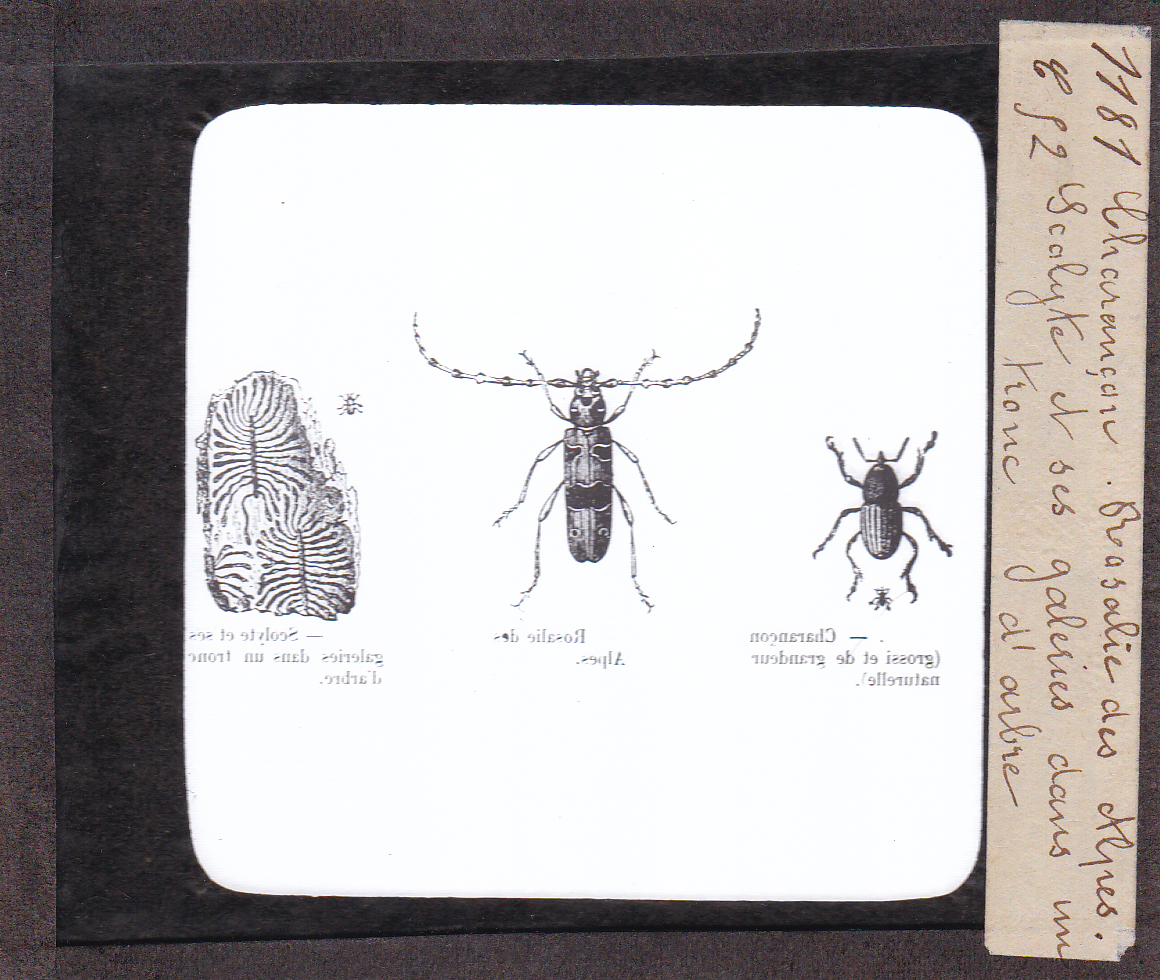 . — Charançon
(grossi et de grandeur
naturelle).
Rosalie des
Alpes.
— Scolyte et ses
galeries dans un tronc
d'arbre.
1181 Charançon. Rosalie des Alpes.
Scolyte et ses galeries dans un
tronc d'arbre